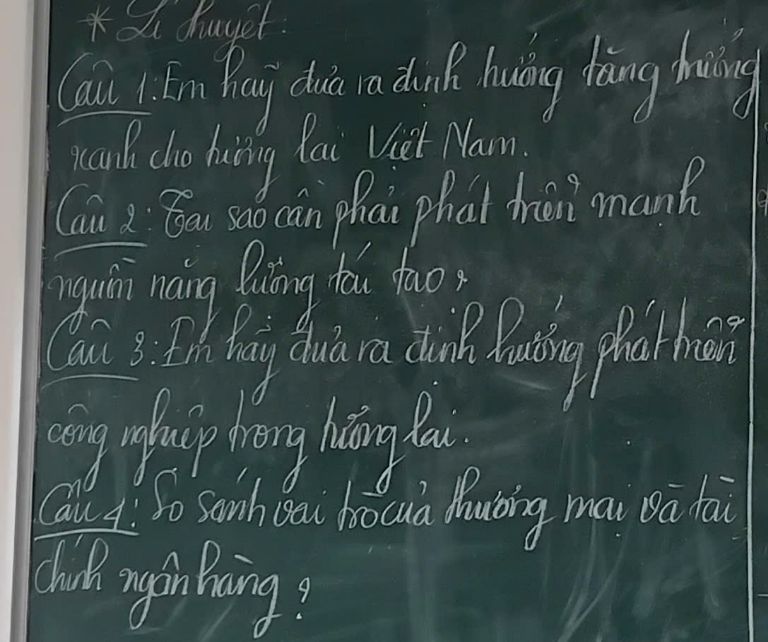 * Lí thuyết:
Câu 1: Em hãy đưa ra định hướng tăng trưởng
xanh cho tương lai Việt Nam.
Câu 2: Tại sao cần phải phát triển mạnh
nguồn năng lượng tái tạo?
Câu 3: Em hãy đưa ra định hướng phát triển
công nghiệp trong tương lai.
Câu 4: So sánh vai trò của thương mại và tài
chính ngân hàng?